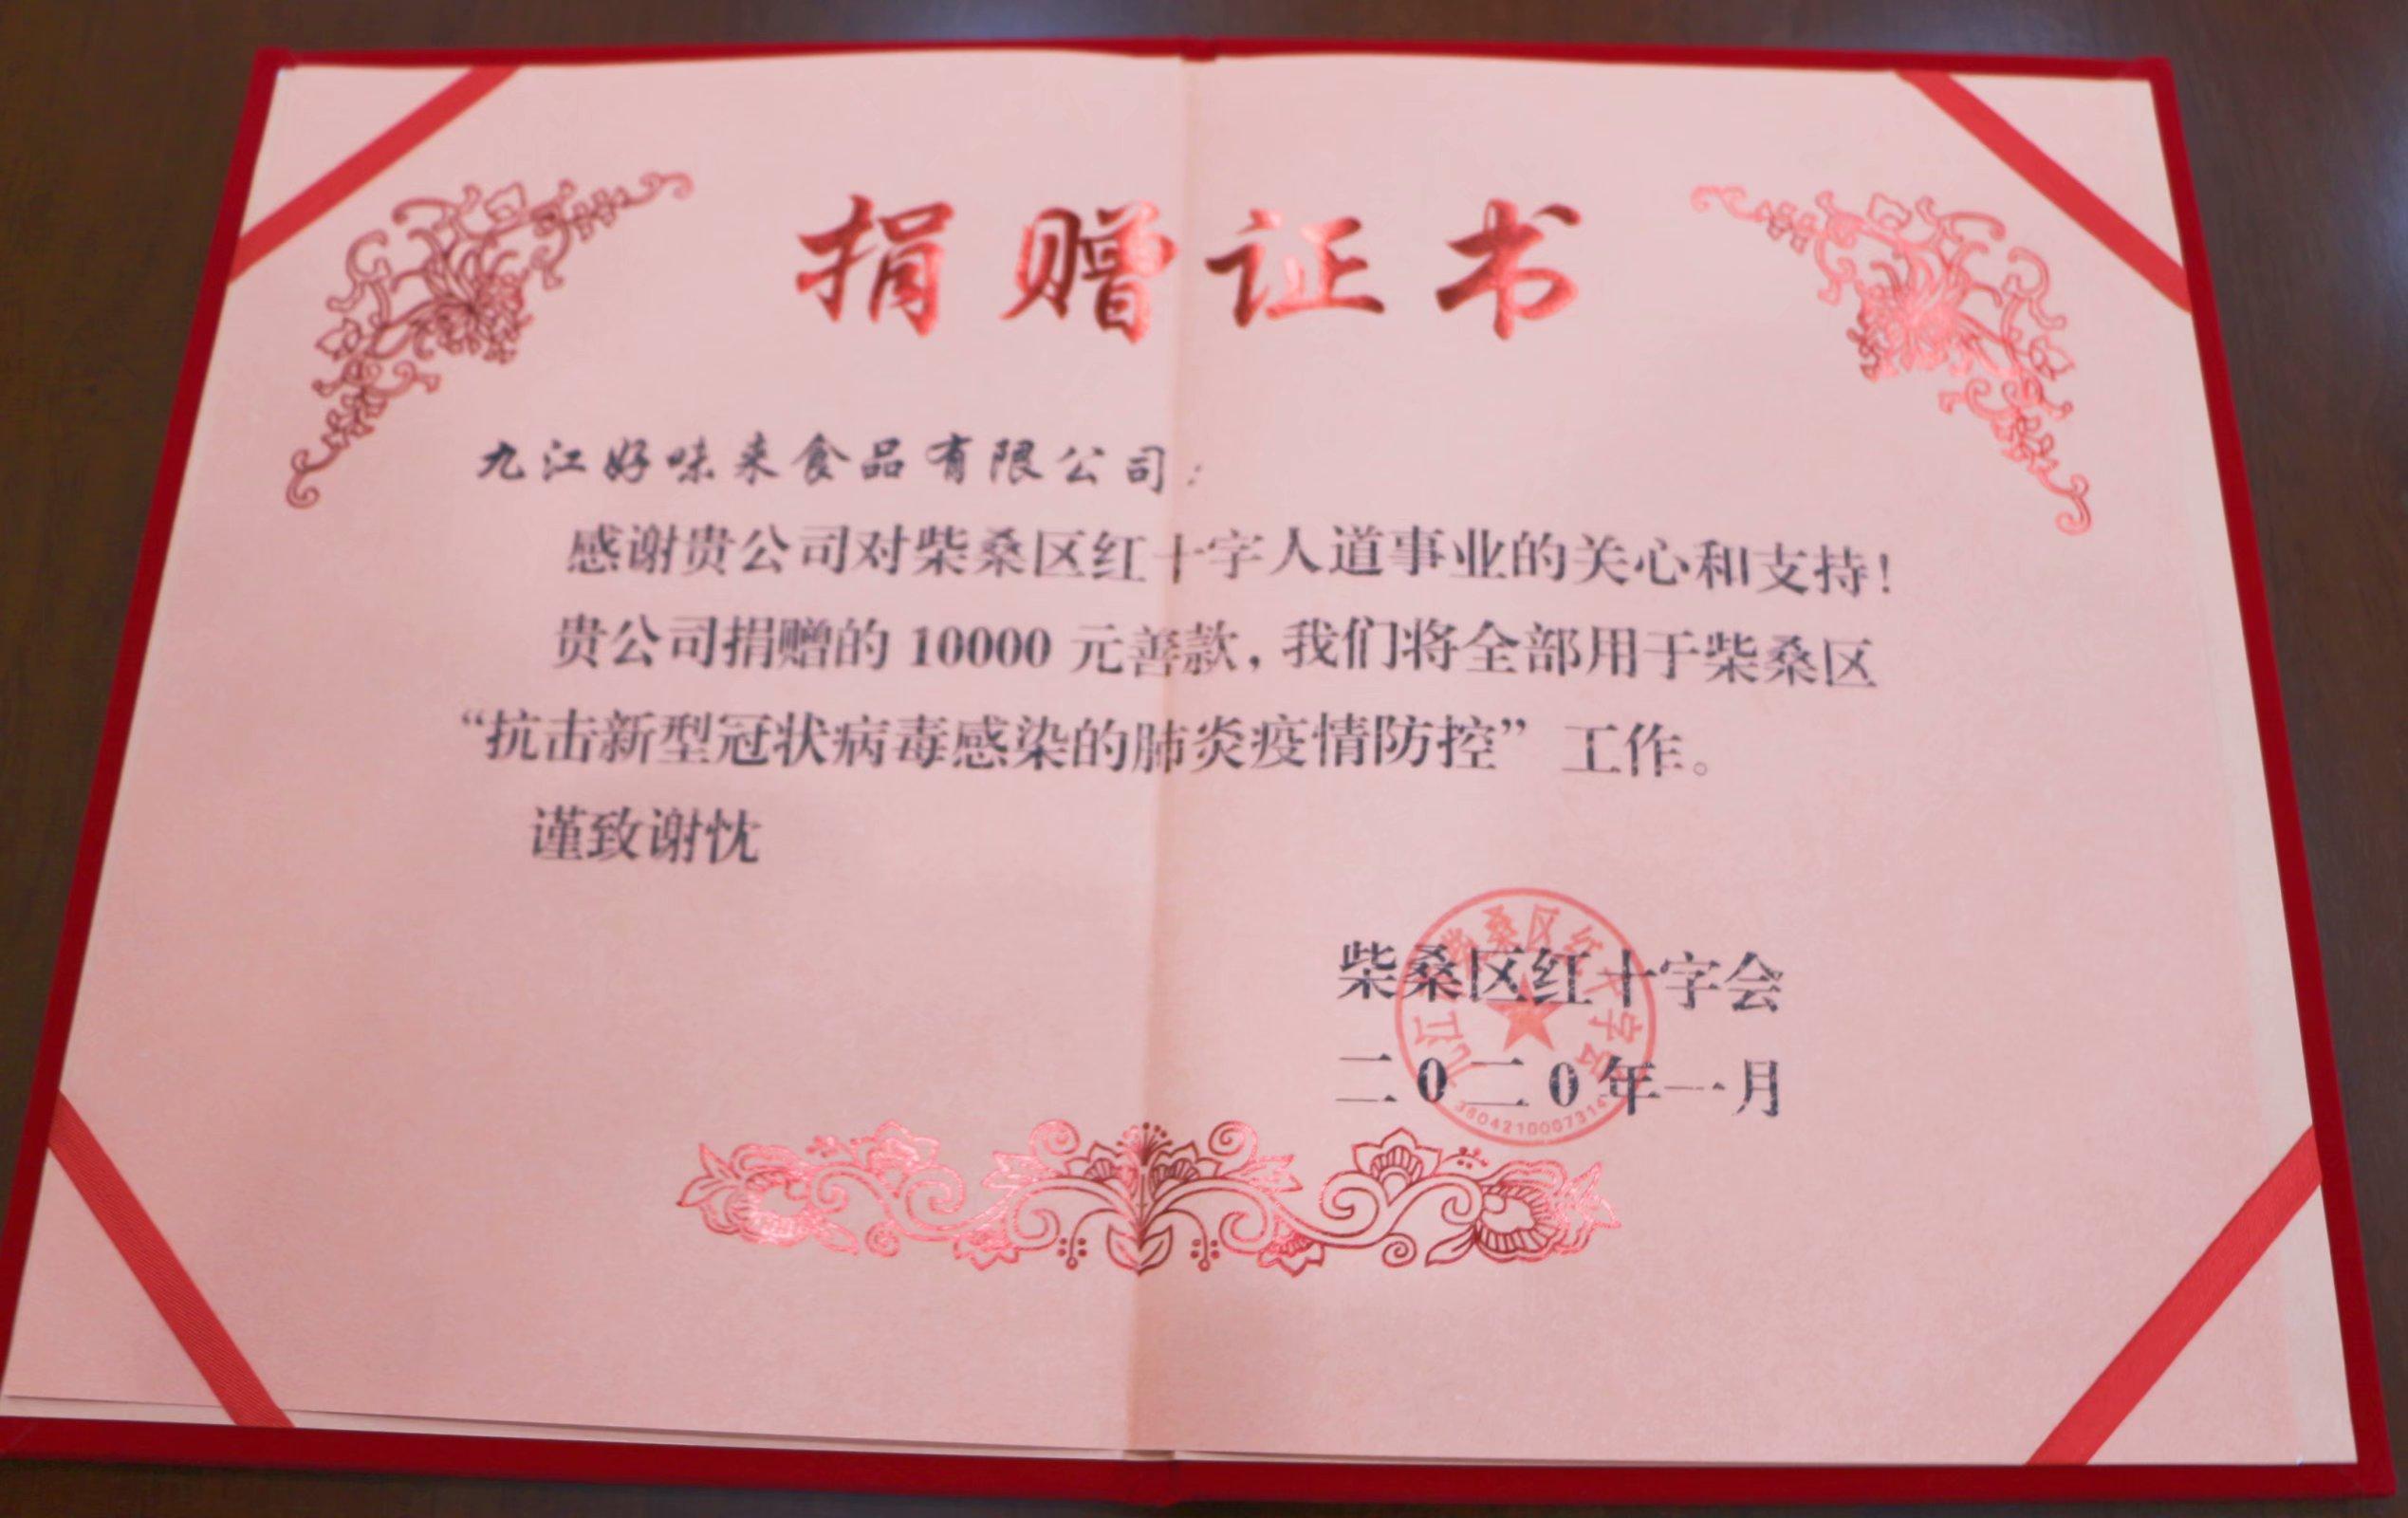 捐赠证书
九江好味来食品有限公司：
感谢贵公司对柴桑区红十字人道事业的关心和支持！
贵公司捐赠的 10000 元善款，我们将全部用于柴桑区
“抗击新型冠状病毒感染的肺炎疫情防控”工作。
谨致谢忱
柴桑区红十字会
二0二0年一月
九江市柴桑区红十字会